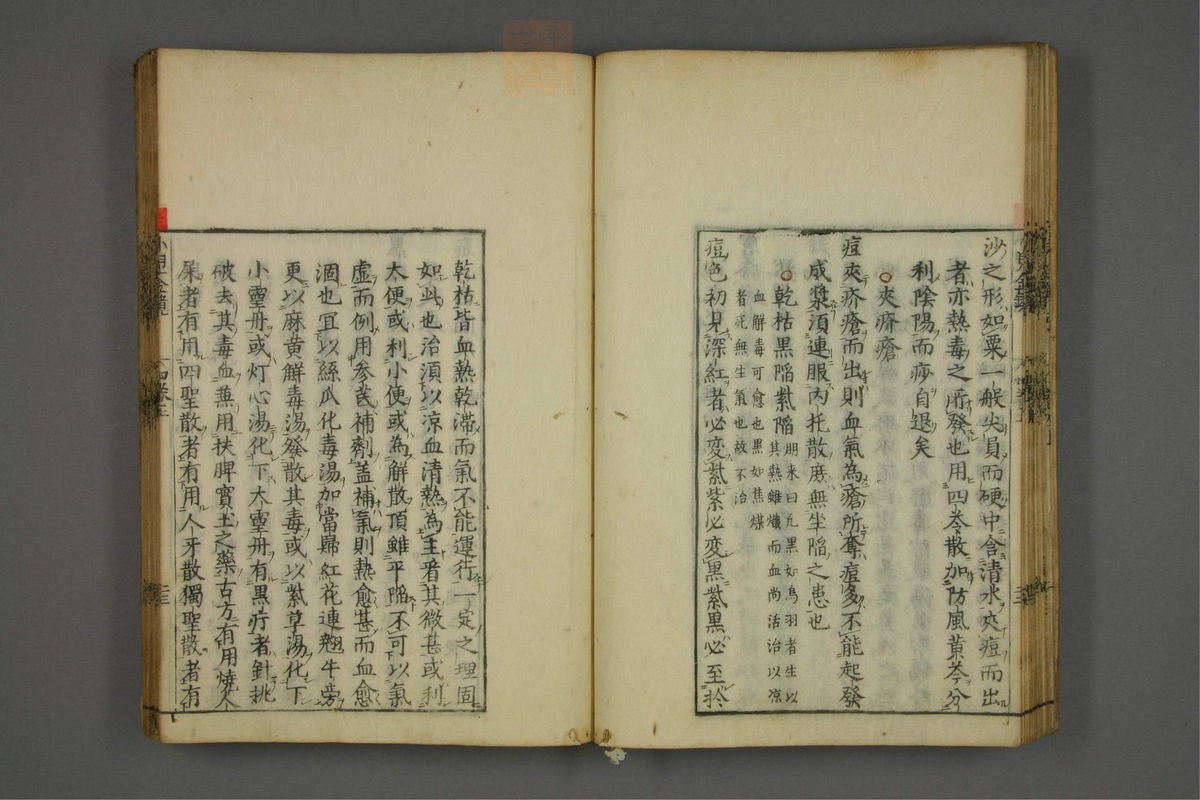 沙之形如粟一般尖員而硬中含清水夾痘而出
者亦熱毒之所發也用四苓散加防風黃芩分
利陰陽而痧自退矣
○夾疥瘡
痘夾疥瘡而出則血氣為瘡所奪痘多不能起發
成漿須連服內托散庶無坐陷之患也
○乾枯黑陷紫陷
朋来曰凢黑如烏羽者生以
其熱雖熾而血尚活治以凉
血解毒可愈也黑如焦煤
者死無生氣也故不治
痘色初見深紅者必変紫紫必変黑紫黑必至於
乾枯皆血熱乾滞而氣不能運行一定之理固
如此也治須以凉血清熱為主看其微甚或利
大便或利小便或為解散頂雖平陷不可以氣
虚而例用参芪補劑盖補氣則熱愈甚而血愈
涸也宜以絲瓜化毒湯加當歸紅花連翹牛蒡
更以麻黄解毒湯發散其毒或以紫草湯化下
小靈丹或灯心湯化下大靈丹有黒疔者針挑
破去其毒血兼用扶脾實土之藥古方有用燒人
屎者有用四聖散者有用人牙散獨聖散者有